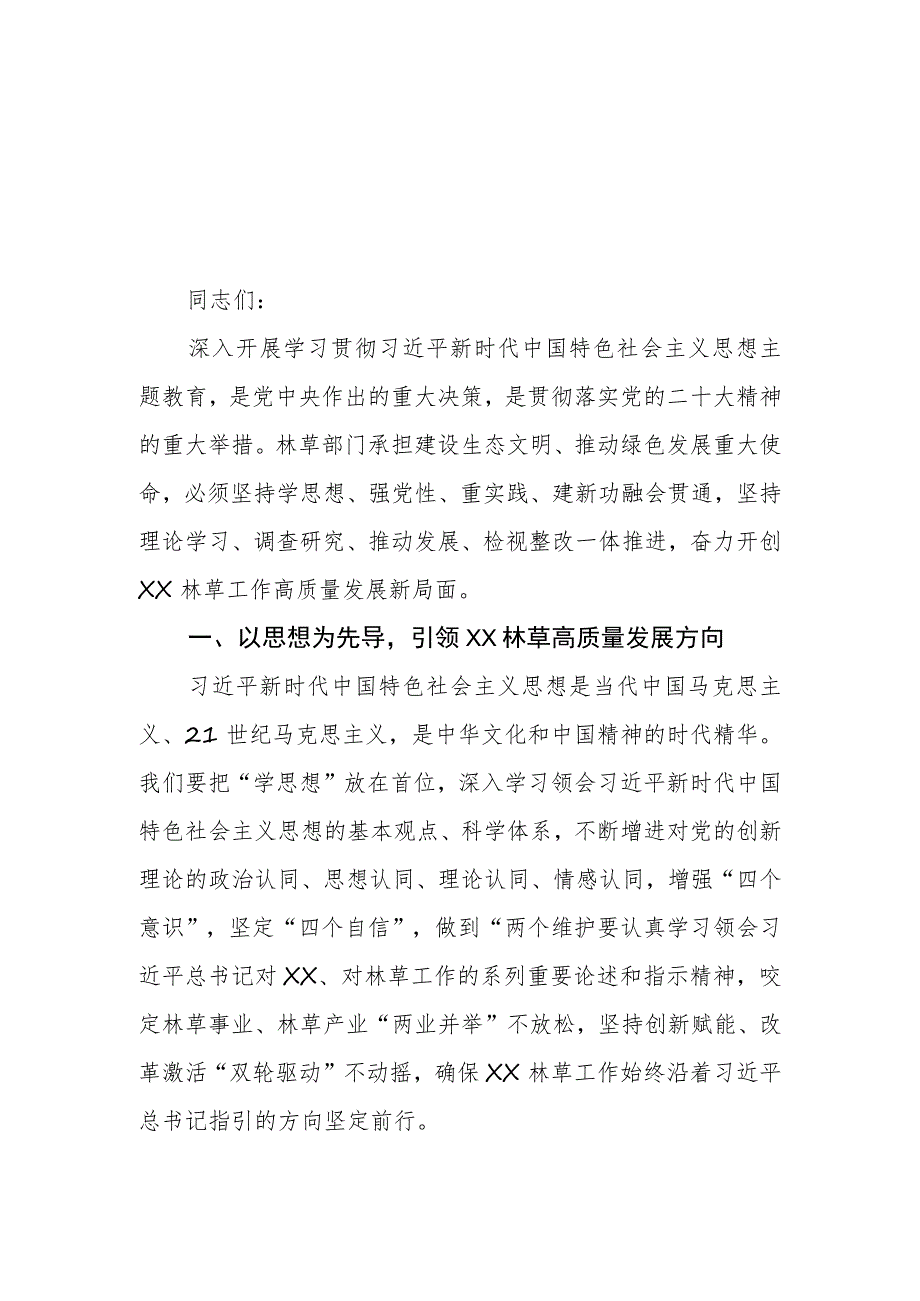 同志们：
深入开展学习贯彻习近平新时代中国特色社会主义思想主
题教育，是党中央作出的重大决策，是贯彻落实党的二十大精神
的重大举措。林草部门承担建设生态文明、推动绿色发展重大使
命，必须坚持学思想、强党性、重实践、建新功融会贯通，坚持
理论学习、调查研究、推动发展、检视整改一体推进，奋力开创
XX 林草工作高质量发展新局面。
一、以思想为先导，引领 XX 林草高质量发展方向
习近平新时代中国特色社会主义思想是当代中国马克思主
义、21 世纪马克思主义，是中华文化和中国精神的时代精华。
我们要把“学思想”放在首位，深入学习领会习近平新时代中国
特色社会主义思想的基本观点、科学体系，不断增进对党的创新
理论的政治认同、思想认同、理论认同、情感认同，增强“四个
意识”，坚定“四个自信”，做到“两个维护要认真学习领会习
近平总书记对 XX、对林草工作的系列重要论述和指示精神，咬
定林草事业、林草产业“两业并举”不放松，坚持创新赋能、改
革激活“双轮驱动”不动摇，确保 XX 林草工作始终沿着习近平
总书记指引的方向坚定前行。